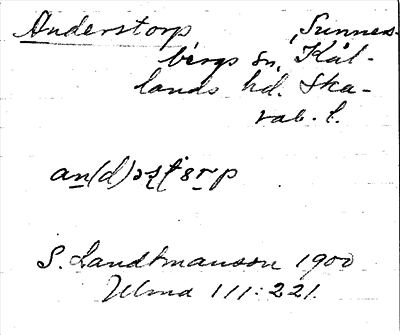 Anderstorp Sunners-
bergs sn, Kål-
lands hd. Ska-
rab. l.
S. Landtmanson 1900
Ulma 111:221.